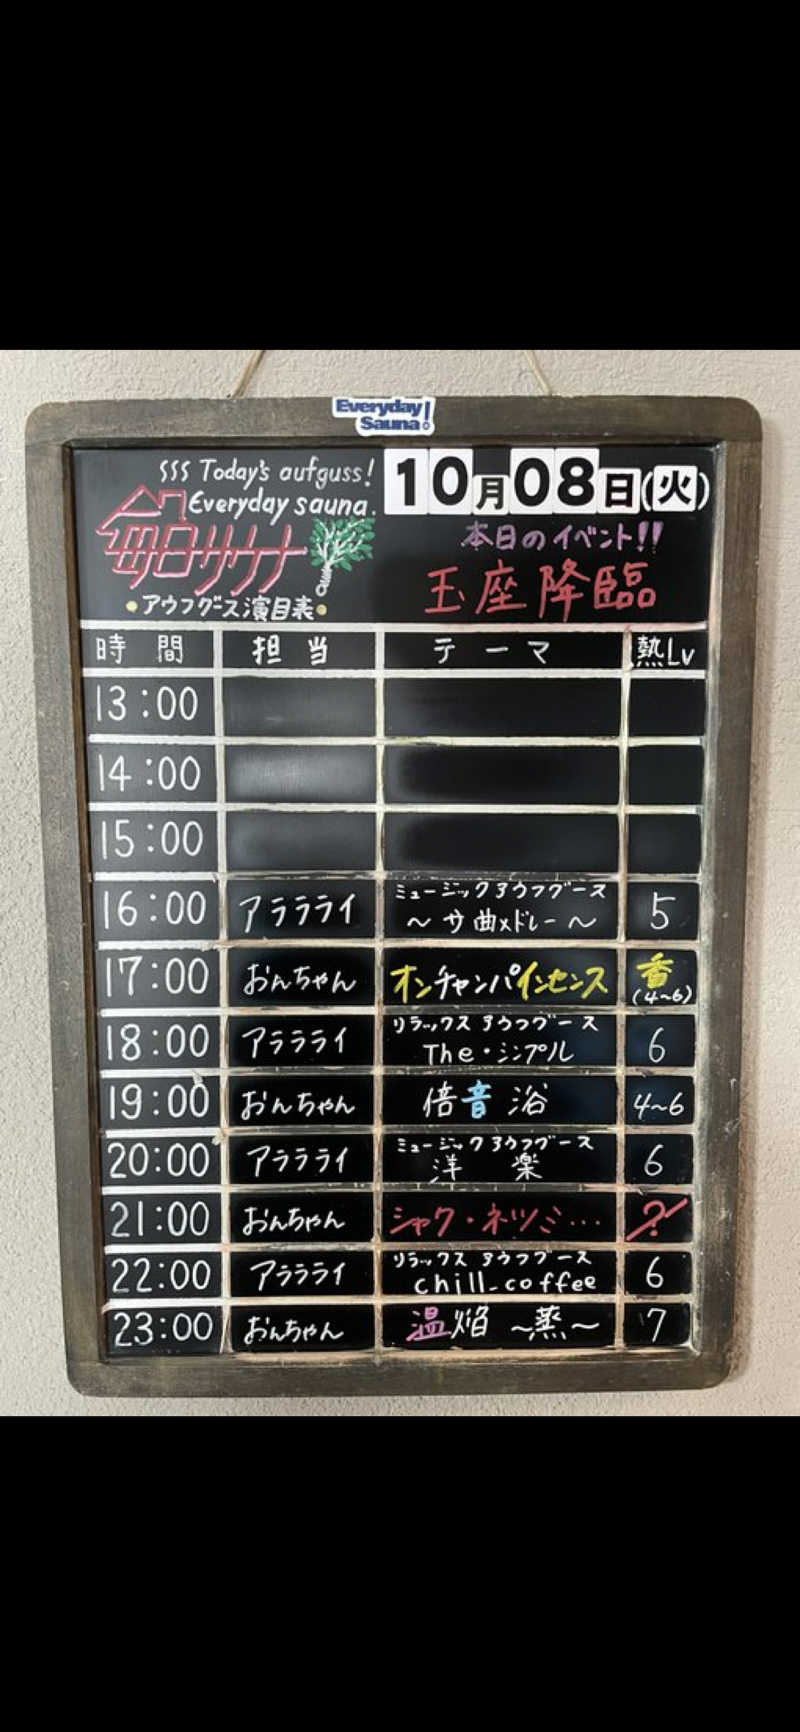 Everyday Sauna!
SSS Today's aufguss!
Everyday sauna.
毎日サウナ
•アウフグース演目表•
10月08日(火)
本日のイベント!!
玉座降臨
時間 担当 テーマ 熱Lv
13:00
14:00
15:00
16:00 アラララライ ミュージックアウフグース 5
～サ曲メドレー～
17:00 おんちゃん オンチャンパインセンス 香
(4~6)
18:00 アララライ リラックスアウフグース 6
The・シンプル
19:00 おんちゃん 倍音浴 4~6
20:00 アララライ ミュージックアウフグース 6
洋楽
21:00 おんちゃん シャク・ネツミ… ?
22:00 アララライ リラックスアウフグース 6
chill-coffee
23:00 おんちゃん 温焔 ～蒸～ 7